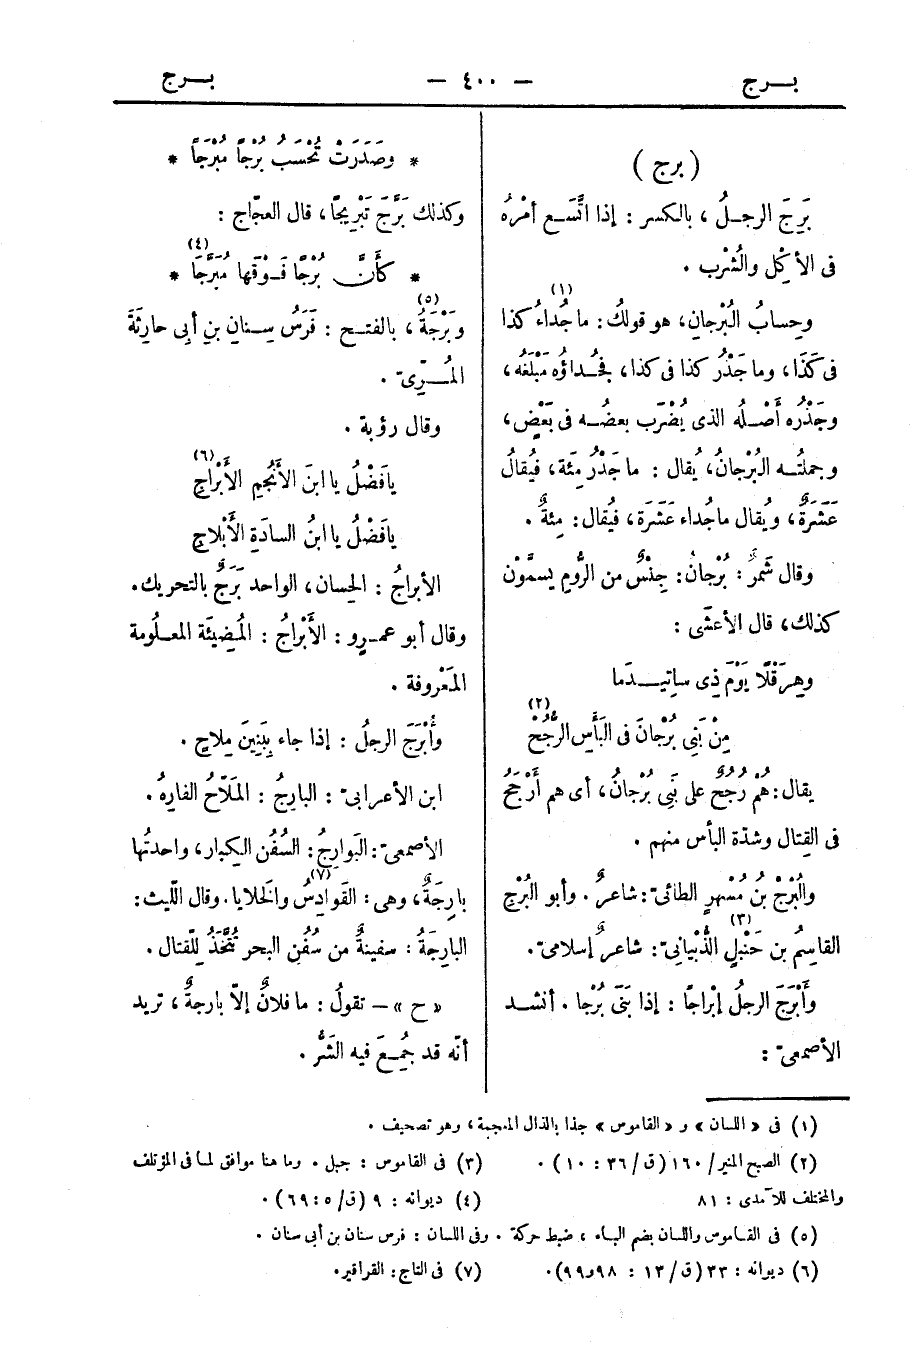 برج — ٤٠٠ — برج
( برج )
بَرِجَ الرجلُ ، بالكسر : إذا اتَّسَع أمْرُه
فى الأكْلِ والشُرْب .
وحِسابُ البُرْجانِ، هو قولكُ: ما جُداءُ كذا (١)
فى كَذَا ، وما جَذْرُ كذا فى كذا ، فجُداؤه مَبْلَغُه ،
وجَذْرُه أَصْلُه الذى يُضْرَب بعضُه فى بَعْضٍ،
وجملتُه البُرْجانُ، يُقال : ما جَذْرُ مِئة ، فيُقالُ
عَشَرَةٌ، ويُقال ماجُداء عَشَرَة، فيُقال: مِئةٌ .
وقال شَمِرٌ : بُرْجانُ: جِنْسٌ من الرُّومِ يسمَّوْن
كذلك، قال الأعشَى :
وهِرَقْلًا يَوْمَ ذِى ساتِيدَما
مِنْ بَنِى بُرْجانَ فى البَأْسِ الرُّجُحْ (٢)
يقال: هُمْ رُجُحٌ على بَنِى بُرْجانُ، أى هم أَرْجَحُ
فى القِتال وشدّة البأْس منهم .
والبُرْجُ بنُ مُسْهِرٍ الطائىّ : شاعرٌ . وأبو البُرْجِ
القاسِمُ بن حَنْبلٍ الذُّبْيانىّ (٣) : شاعرٌ إسلامىّ .
وأَبْرَجَ الرجلُ إبْراجًا : إذا بَنَى بُرْجا . أنشد
الأصمعىّ :
* وصَدَرَتْ تُحْسَبُ بُرْجاً مُبْرَجَاً *
وكذلك بَرَّجَ تَبْرِيجًا ، قال العجّاج :
* كأَنَّ بُرْجًا فَوْقَها مُبَرَّجَا (٤) *
وبَرْجَةُ (٥) ، بالفتح : فَرَسُ سِنانِ بنِ أبى حارِثَةَ
المُرِّىّ .
وقال رؤبة .
يافَضْلُ يا ابنَ الأَنْجُمِ الأَبْراجِ (٦)
يافَضْلُ يا ابنُ السادَةِ الأَبْلاجِ
الأبراجُ : الحِسان ، الواحد بَرَجٌ بالتحريك.
وقال أبو عمرٍو : الأَبْراجُ : المُضيئَة المعلُومة
المَعْروفة .
وأَبْرَجَ الرجلُ : إذا جاء بِبَنِينَ مِلاحٍ .
ابن الأعرابىّ : البارِجُ : المَلّاحُ الفارِهُ .
الأصمعىّ: البَوارِجُ: السُفُن الكبار، واحدتُها
بارِجَةٌ، وهى : القَوادِسُ (٧) والخَلايا. وقال اللّيث:
البارِجَةُ : سفينةٌ من سُفُنِ البحر تُتَّخَذُ للِقتال .
« ح » — تقولُ : ما فلانٌ إلّا بارجةٌ ، تريد
أنّه قد جُمِعَ فيه الشَّرُّ .
(١) فى «اللسان» و «القاموس» جذا بالذال المعجمة، وهو تصحيف .
(٢) الصبح المنير/ ١٦٠ (ق/ ٣٦ : ١٠) . (٣) فى القاموس : جبل . وما هنا موافق لما فى المؤتلف
والمختلف للآمدى : ٨١ (٤) ديوانه : ٩ (ق/ ٥ : ٦٩) .
(٥) فى القاموس واللسان بضم الباء ، ضبط حركة . وفى اللسان : فرس سنان بن أبى سنان .
(٦) ديوانه : ٣٣ (ق/ ١٣ : ٩٨ و٩٩). (٧) فى التاج: القراقير.